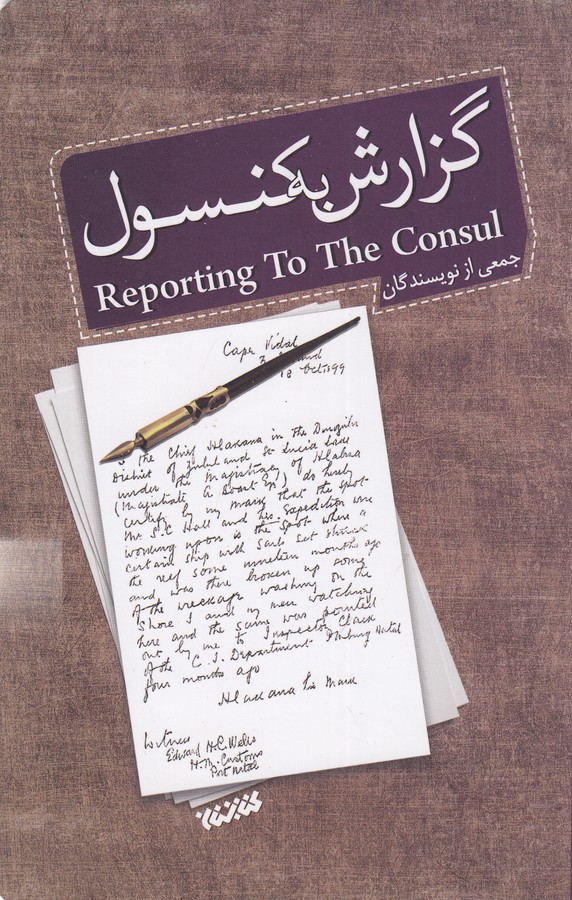 گزارش به کنسول
Reporting To The Consul
جمعی از نویسندگان
Cape Vidal
18 Oct. 99
the Chief Hlawana in the
District of Zululand St Lucia Lake
under the Magistracy of Hlabisa
(Magistrate A Boast Esq) do hereby
certify by my mark that the spot
Mr S.C Hall and his Expedition are
working upon is the spot where a
certain ship with sails set struck
the reef some nineteen months ago
and was there broken up some
of the wreckage washing on the
shore I and my men watching
here and the same was pointed
out by me to Inspector Clark
of the C. I. Department Natal
four months ago
his Mark
Witness
Edward H.C. Wells
H.M. Customs
Port Natal
کتابستان